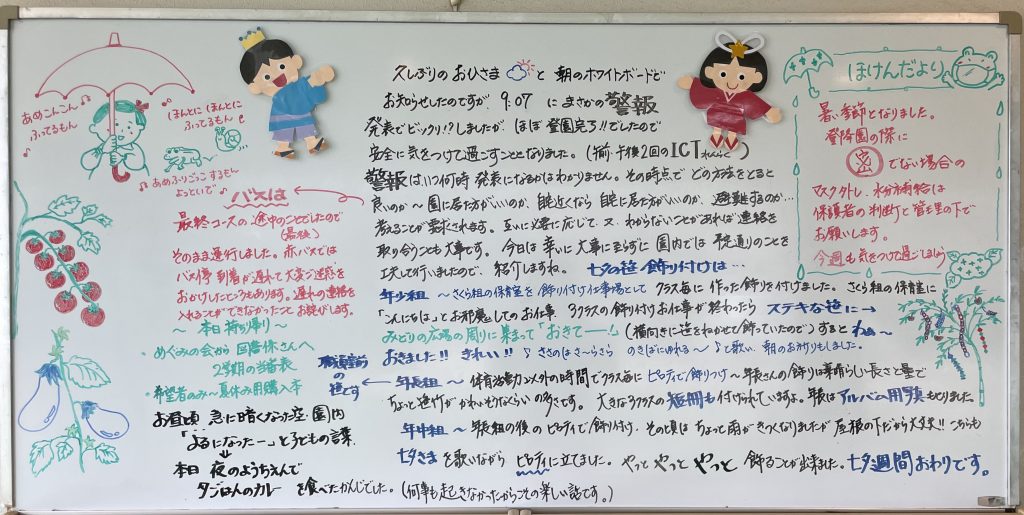 あめこんこん
ふってるもん
ほんとに ほんとに
ふってるもん
あめふりごっこするもん
よっといで
バスは
最終コースの途中のことでしたので
(最後)
そのまま運行しました。赤バスでは
バス停到着が遅れて大変ご迷惑を
おかけしたところもあります。遅れの連絡を
入れることができなかったこと お詫びします。
〜本日 持ち帰り〜
・めぐみの会から 園 さんへ
2学期の当番表
・希望者のみ〜夏休み用購入本
お昼頃 急に暗くなった空 園内
「よるになったー」と子どもの言葉
本日 夜のようちえんで
夕ごはんのカレー を食べたかんじでした。(何事も起きなかったからこその楽しい話です。)
久しぶりの おひさま と 朝のホワイトボードで
お知らせしたのですが、9:07 に まさかの警報
発表でビックリ!?しましたが、ほぼ 登園完了!!でしたので
安全に気をつけて過ごすこととなりました。(午前・午後2回のICTれんらく)
警報はいつ何時 発表になるかはわかりません。その時点で どの方法をとると
良いのか〜 園に居た方がいいのか、駅近くなら 駅に居た方がいいのか、避難するのか…
考えることが要求されます。互いに必要に応じて、又、わからないことがあれば連絡を
取り合うことも大事です。 今日は 幸いに大事に至らずに 園内では 予定通りのことを
工夫して行いましたので、紹介しますね。 七夕の笹 飾り付けは…
年少組 〜さくら組の保育室を 飾り付け仕事場として クラス毎に 作った飾りを付けました。 さくら組の保育室に
「こんにちは」とお邪魔してのお仕事 3クラスの飾り付けお仕事が終わったら ステキな笹に→
みどりの広場の周りに集まって「おきてーー!」(横向きに笹をねかせて飾っていたので)すると わぁ〜
おきました!! きれい!! ♪ささのは さ〜らさら のきばにゆれる〜♪と歌い、朝のお祈りもしました。
職員室前
の
笹です
← 年長組 〜 体育活動以外の時間でクラス毎に ピロティで飾りつけ〜年長さんの飾りは素晴らしい長さと量で
ちょっと笹竹が かわいそうなくらい の多さです。 大きな3クラスの短冊も付けられていますよ。年長は アルバム用写真もとりました。
年中組 〜 年長組の後の ピロティで飾り付け、その頃は ちょっと雨がきつくなりましたが 屋根の下だから大丈夫!! こちらも
七夕さま を歌いながら ピロティに立てました。 やっと やっと やっと 飾ることが出来ました。七夕週間おわりです。
ほけんだより
暑い季節となりました。
登降園の際に
でない場合の
マスク外し、水分補給は
保護者の判断と管理の下で
お願いします。
今週も 気をつけて過ごしましょう